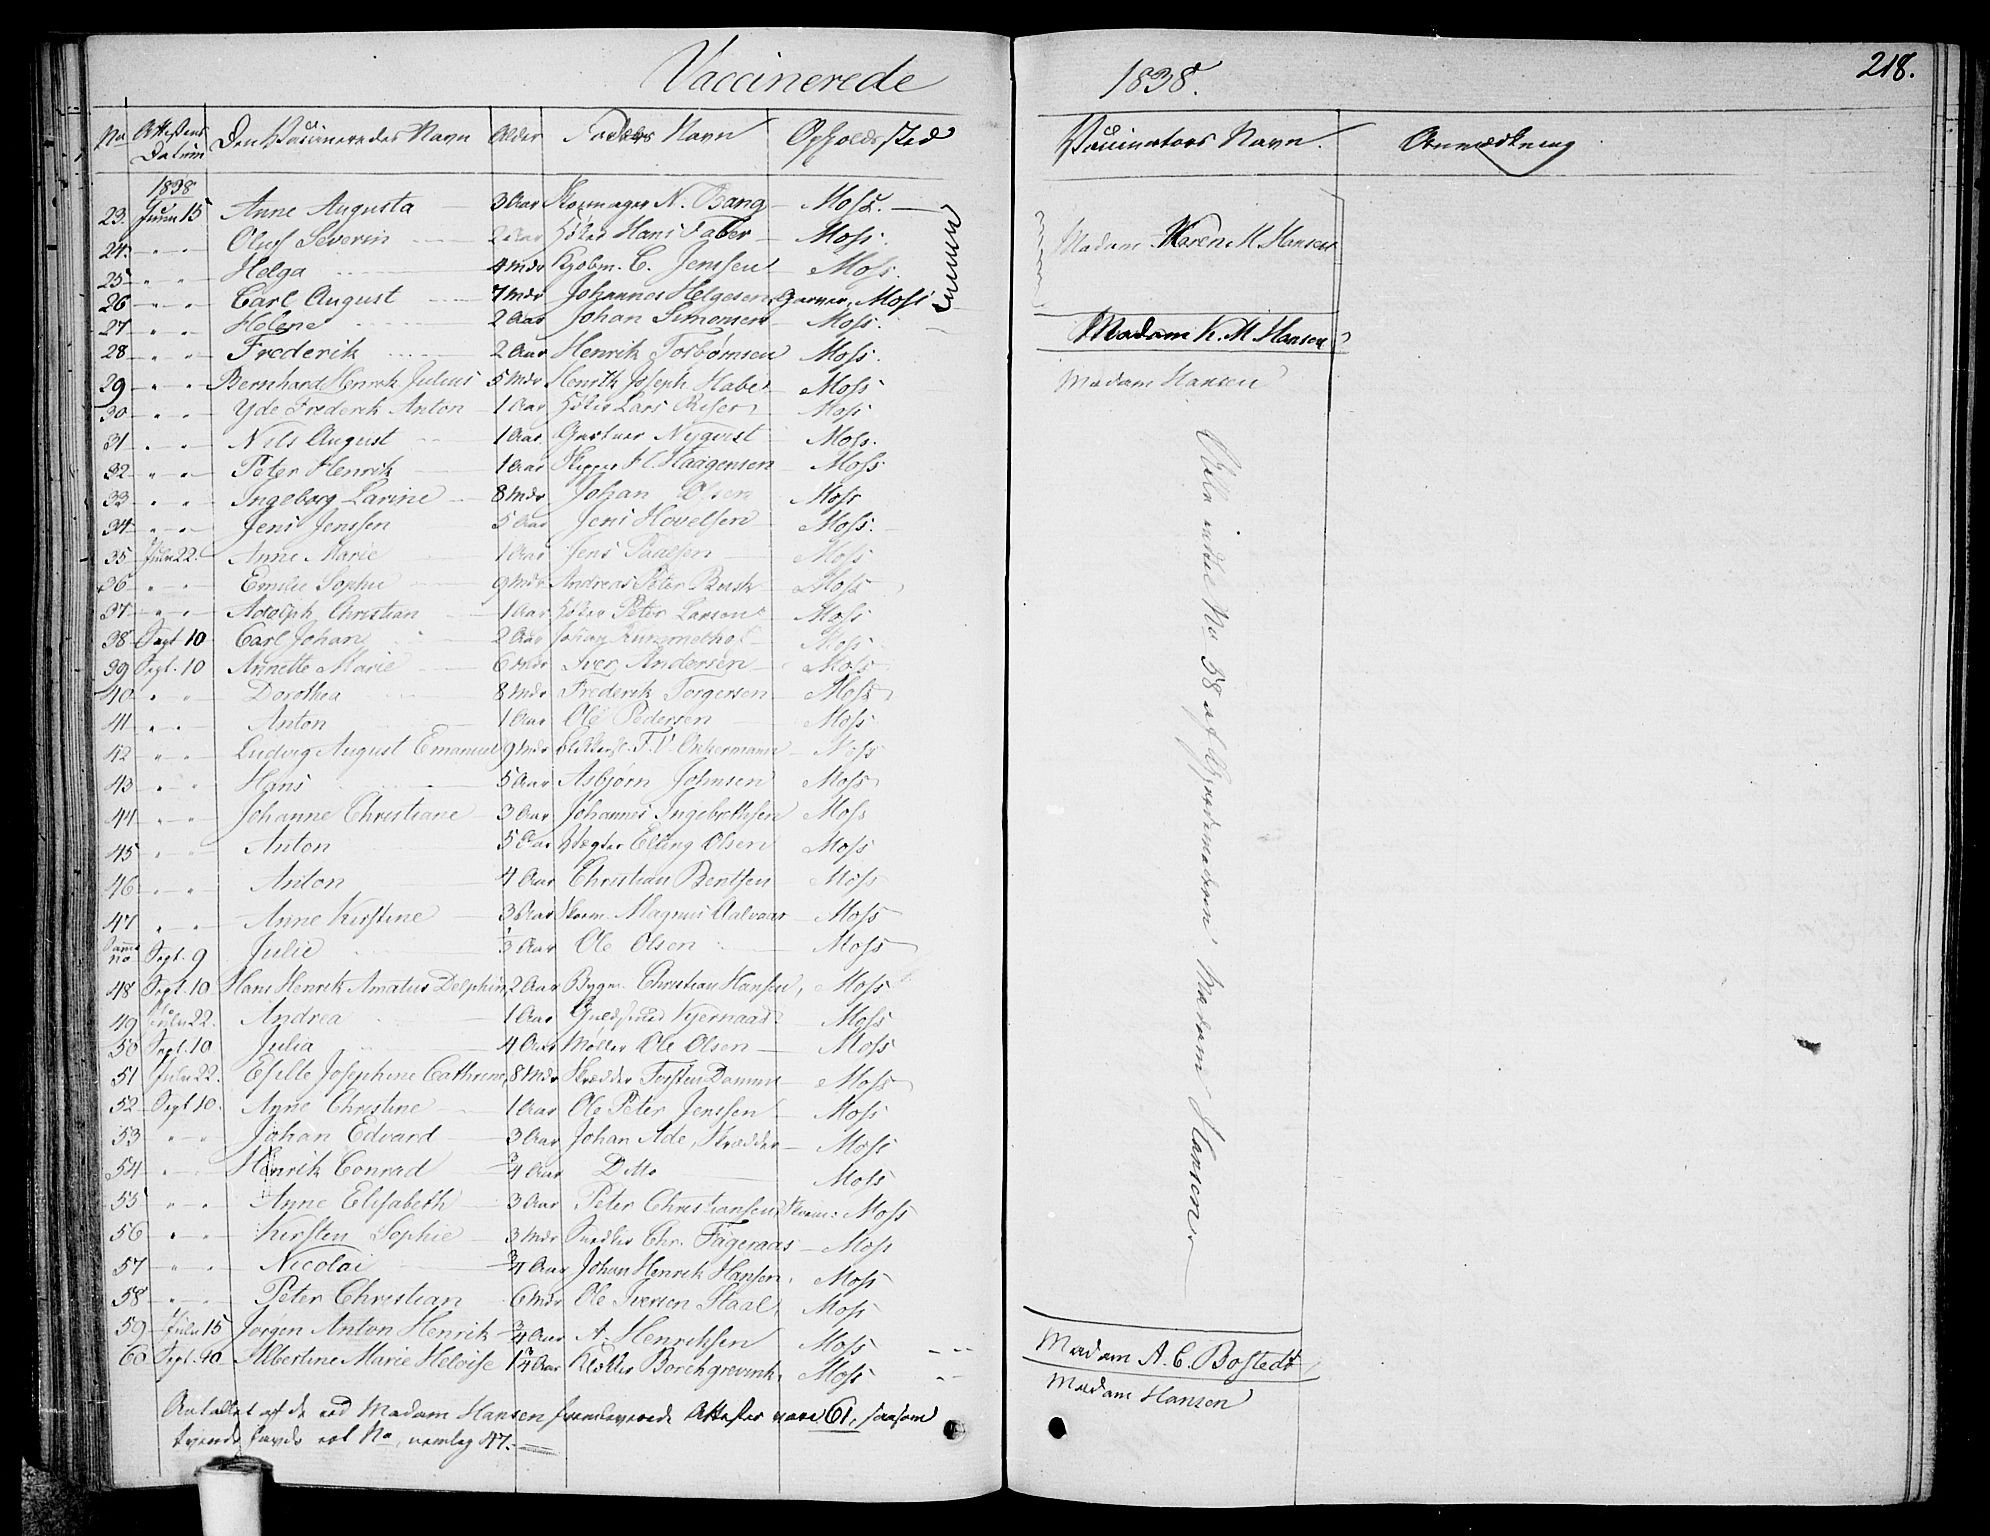 Vaccinerede 1838. 218.
No Attestens Datum Den Vaccineredes Navn Alder Faders Navn Opholdssted Vaccinators Navn. Anmærkning
1838
23. Juni 15 Anne Augusta 3 Aar Skomager N. Bang Moss.
24. " " Oluf Severin 2 Aar Hans Faber Moss. Madam Karen M Hansen
25 " " Helga 4 Mdr Kjøbm. C. Jenssen Moss.
26 " " Carl August 7 Mdr Johannes Helgesen Garver, Moss
27 " " Helene 2 Aar Johan Simonsen Moss. Madam K. M Hansen
28 " " Frederik 2 Aar Henrik Torbørnsen Moss.
29 " " Bernhard Henrik Julius 5 Mdr Henrik Joseph Habel Moss Madam Hansen
30 " " Yde Frederik Anton 1 Aar Lars Riser Moss
31 " " Nils August 1 Aar Nyqvist Moss.
32 " " Peter Henrik 1 Aar Skipper H. Haagensen Moss
33 " " Ingeborg Larine 8 Mdr Johan Olsen Moss
34 " " Jens Jenssen 5 Aar Jens Hovelsen Moss.
35 Juli 22. Anne Marie 1 Aar Jens Paalsen Moss
36 " " Emilie Sophie 9 Mdr Andreas Peter Moss
37 " " Adolph Christian 1 Aar Peter Larsen Moss
38 Sept 10 Carl Johan 2 Aar Johan Moss
39 Sept. 10 Annette Marie 6 Mdr Iver Andersen Moss
40 " " Dorothea 8 Mdr Frederik Torgersen Moss
41 " " Anton 1 Aar Ole Pedersen Moss
42 " " Ludvig August Emanuel 9 Mdr Moss
43 " " Hans 5 Aar Asbjørn Johnsen Moss
44 " " Johanne Christiane 3 Aar Johannes Ingebrethsen Moss
45 " " Anton 5 Aar Vægter Elling Olsen Moss
46 " " Anton 4 Aar Christian Bentsen Moss
47 " " Anne Kirstine 3 Aar Skom. Magnus Aalvaar Moss
Samme no Sept. 9 Julie 3 Aar Ole Olsen Moss
48 Sept. 10 Hans Henrik Amatus Delphin 2 Aar Bygm. Christian Hansen, Moss
49 Juli 22. Andrea 1 Aar Guldsmed Kjernaas Moss
50 Sept. 10 Julia 4 Aar Møller Ole Olsen Moss
51 Juli 22. Esille Josephine Cathrine, 8 Mdr Skrædder Torsten Damm Moss
52 Sept 10. Anne Christine 1 Aar Ole Peter Jenssen Moss
53 " " Johan Edvard 3 Aar Johan Ade, Skrædder Moss
54 " " Henrik Conrad 3/4 Aar Ditto Moss
55 " " Anne Elisabeth 3 Aar Peter Christiansen, Skom: Moss
56 " " Kirsten Sophie 3 Mdr Snedker Chr. Fageraas Moss
57 " " Nicolai 3/4 Aar Johan Henrik Hansen. Moss
58 " " Peter Christian 6 Mdr Ole Iverson Staal Moss
Ville indtil No 58 af Gjordemoderen Madam Hansen
59 Juli 15 Jørgen Anton Henrik 3/4 Aar A. Henrichsen Moss Madam A. C. Bostedt
60 Sept. 10 Albertine Marie Heloise 1 3/4 Aar Borchgrevink, Moss Madam Hansen
Antallet af de ved Madam Hansen fremleverede Attester vare 61, saasom
tvende havde eet No, nemlig 47.